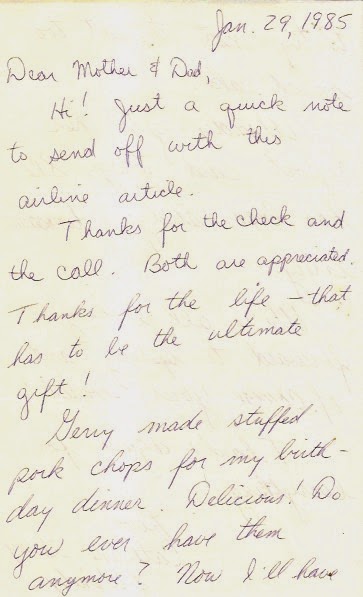 Jan. 29, 1985
Dear Mother & Dad,
Hi! Just a quick note
to send off with this
airline article.
Thanks for the check and
the call. Both are appreciated.
Thanks for the life – that
has to be the ultimate
gift!
Gerry made stuffed
pork chops for my birth-
day dinner. Delicious! Do
you ever have them
anymore? Now I'll have